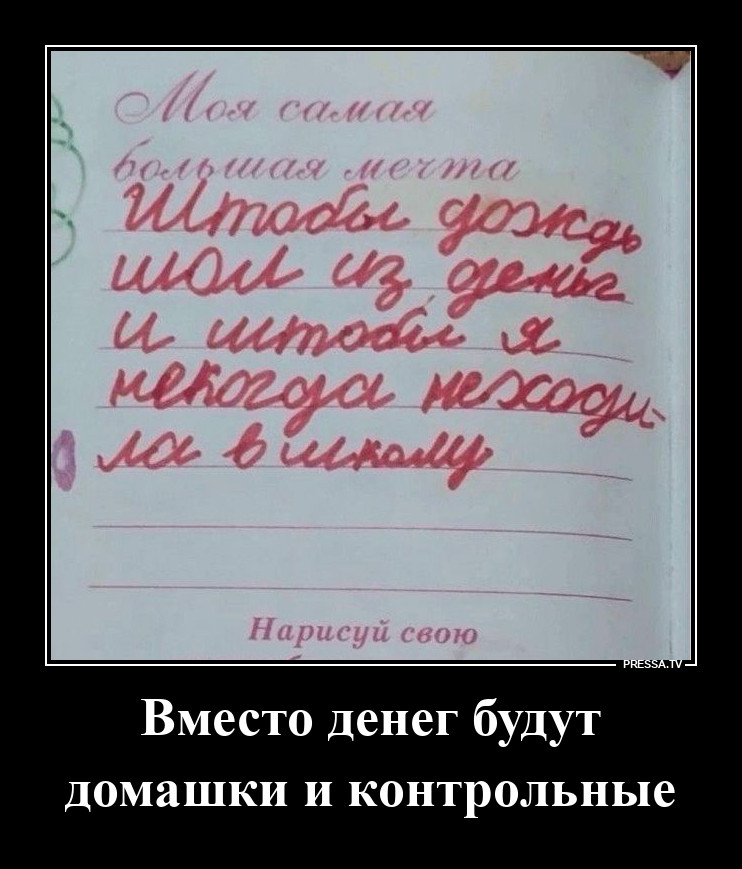 Моя самая
большая мечта
Штобы дождь
шол из деньг
и штобы я
некогда неходи-
ла в школу
Нарисуй свою
PRESSA.TV
Вместо денег будут
домашки и контрольные